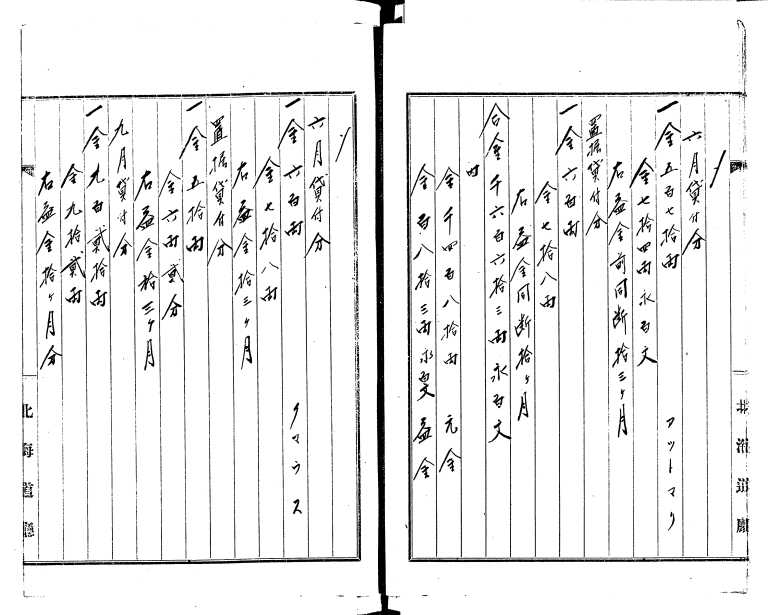 〃
六月貸付分
一金五百七拾両　アツトマリ
金七拾四両永百文
右益金前同断拾三ヶ月
置据貸付分
一金六百両
金七拾八両
右益金同断拾ヶ月
合金千六百六拾三両永百文
内
金千四百八拾両　元金
金百八拾三両永百文　益金
北海道廳
〃
六月貸付分
一金六百両　クマウス
金七拾八両
右益金拾三ヶ月
置据貸付分
一金五拾両
金六両貳分
右益金拾三ヶ月
九月貸付分
一金九百貳拾両
金九拾貳両
右益金拾ヶ月分
北海道廳